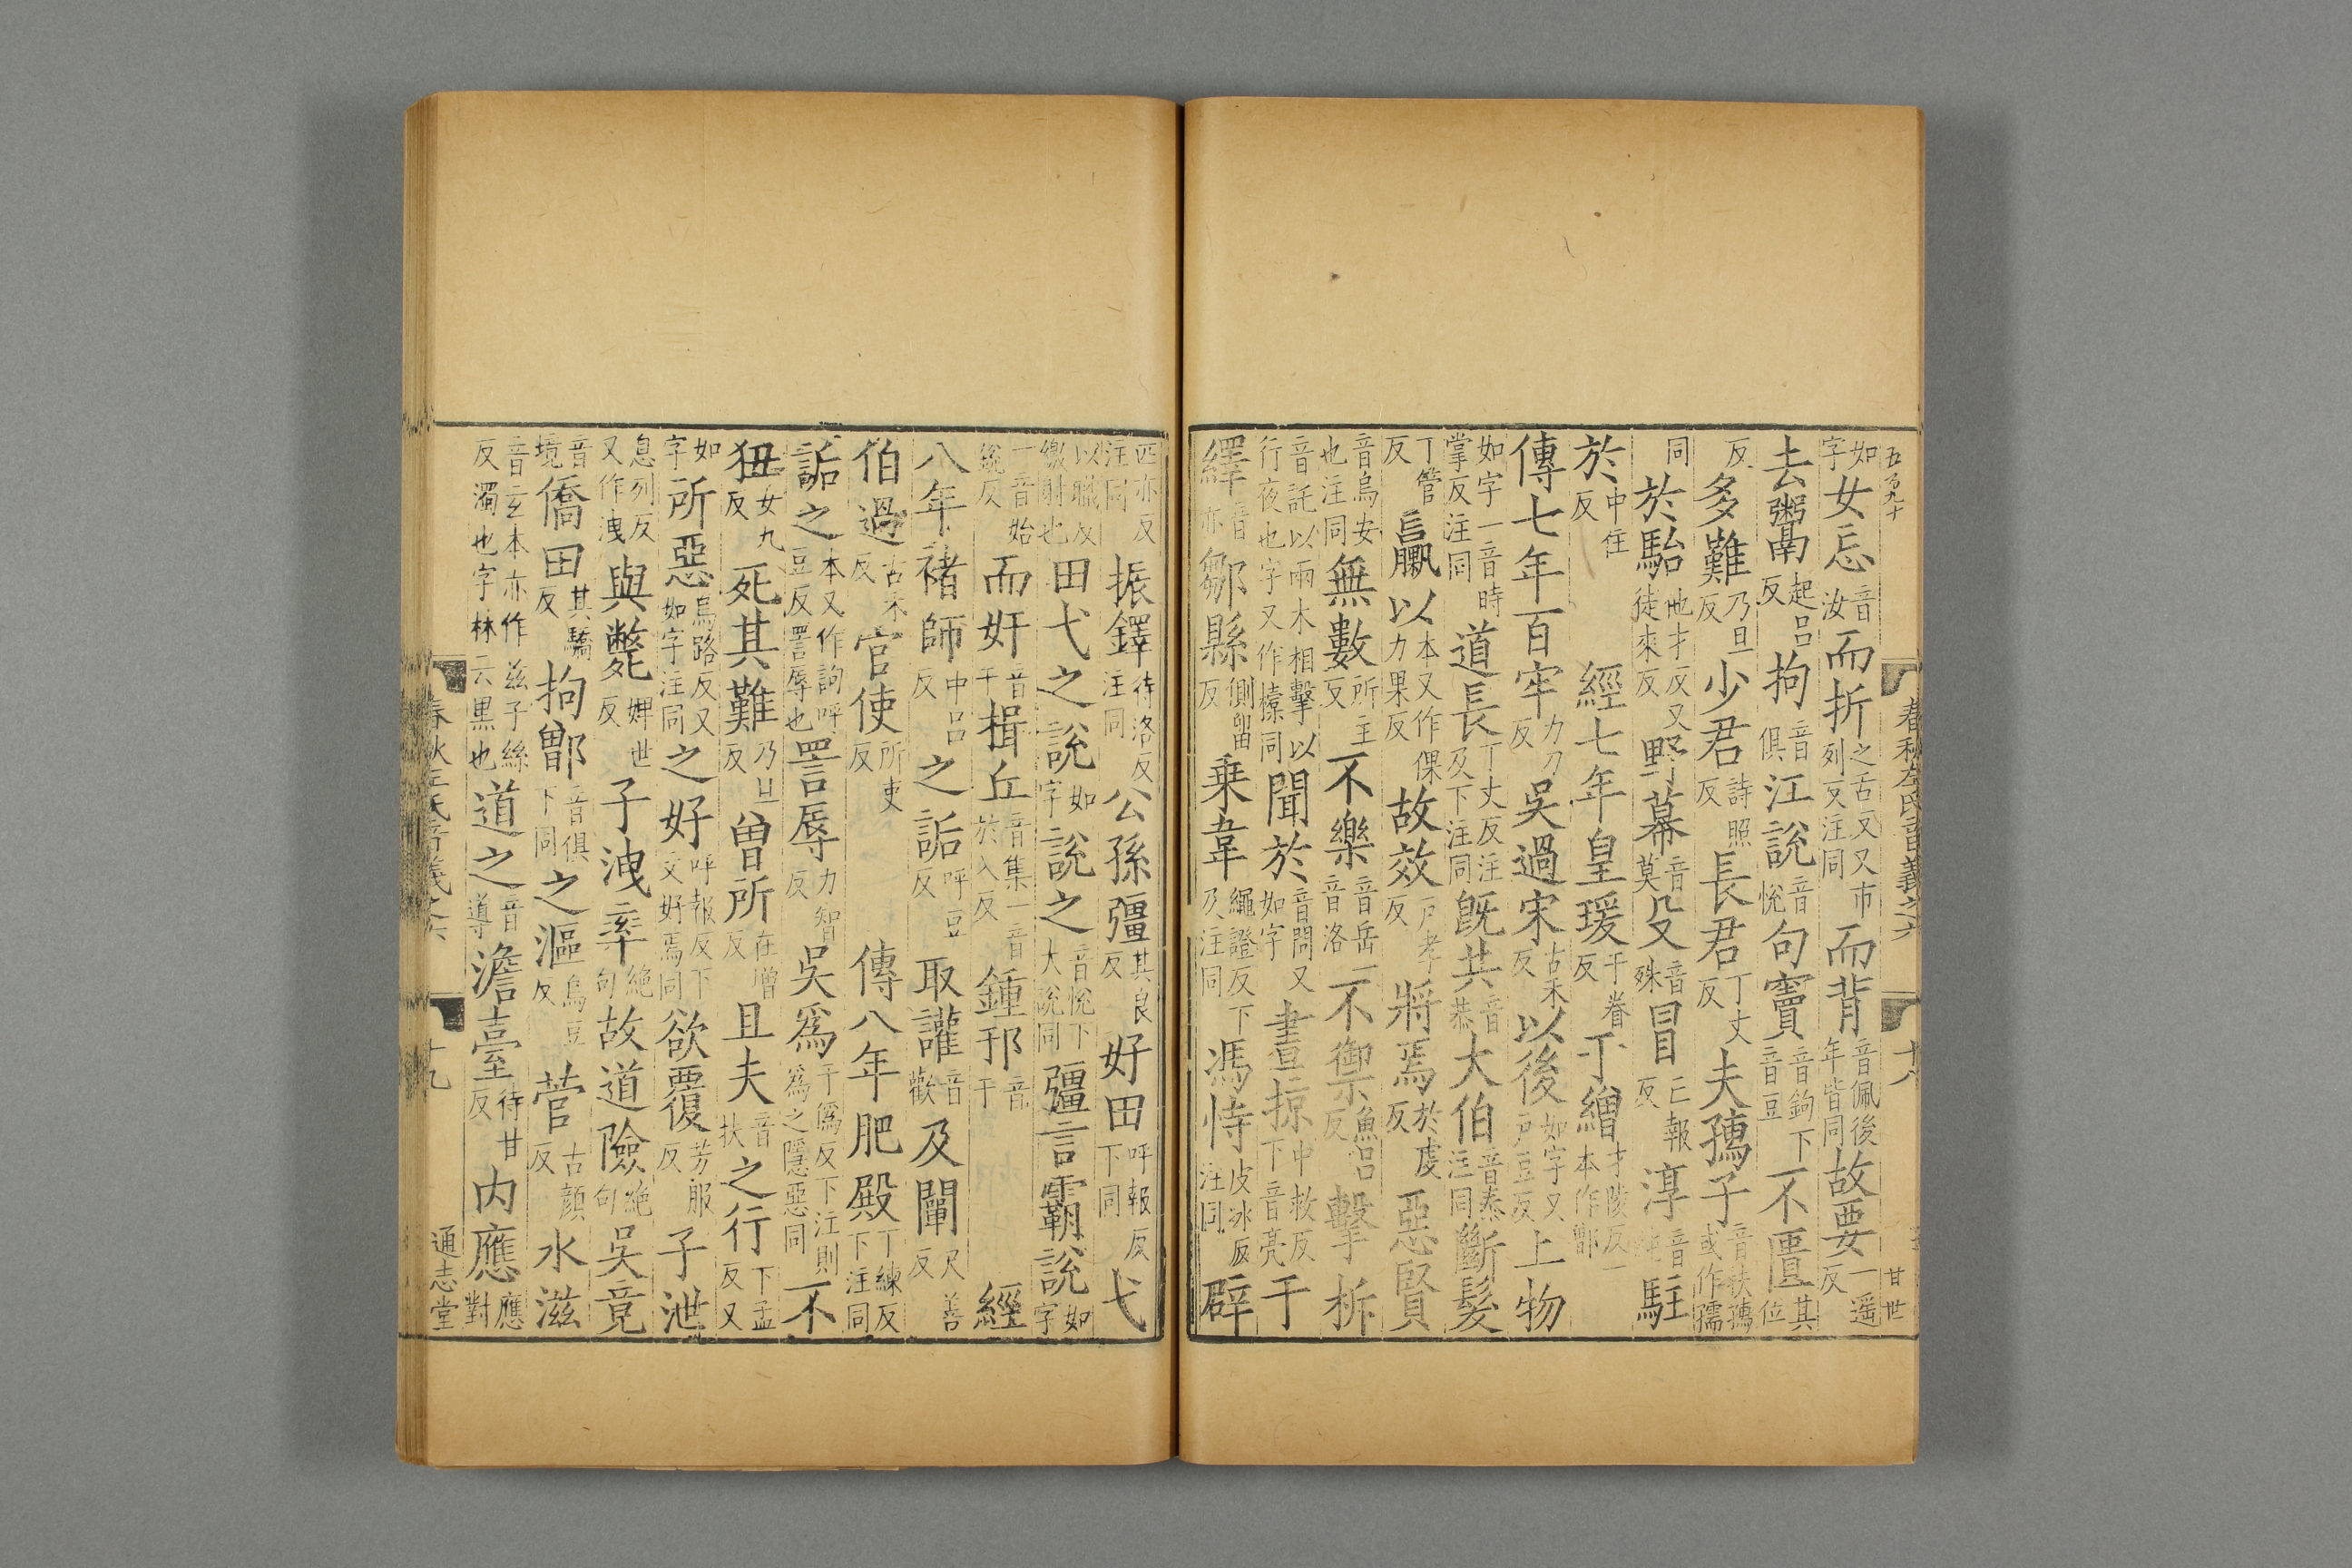 春秋左氏音義之六 十八
如字女忘音汝而折之舌反又市列反注同而背音佩後年皆同故要一遥反
去鬻起呂反拘音俱江說音悅句竇音鉤下音豆不匱其位
反多難乃旦反少君詩照反長君丁丈反夫孺子音扶孺或作孺
同於駘他才反又徒來反野幕音莫殳音殊冒亡報反淳音純駐
於中住反 經七年皇瑗于眷反丁繒才陵反一本作鄫
傳七年百牢力刀反吳過宋古禾反以後如字又戶豆反上物
如字一音時掌反注同道長丁丈反注及下注同既共音恭大伯音泰注同斷髮
丁管反羸以本又作倮力果反故效戶孝反將焉於虔反惡賢
音烏安也注同無數所主反不樂音岳一音洛不禦魚呂反擊柝
音託以兩木相擊以行夜也字又作㯓同聞於音問又如字晝掠中救反下音亮于
繹音亦鄒縣側留反乗韋繩證反下及注同馮恃皮冰反注同辟
匹亦反注同振鐸待洛反注同公孫彊其良反好田呼報反下同弋
以職反繳射也田弋之說如字說之音悅下大說同彊言霸說如字
一音始銳反而奸音干揖丘音集一音於入反鍾邗音干 經
八年褚師中呂反之詬呼豆反取讙音歡及闡尺善反
伯過古禾反官使所吏反 傳八年肥殿丁練反下注同
詬之本又作訽呼豆反詈辱也詈辱力智反吳爲于僞反下注則爲之隱惡同不
狃女九反死其難乃旦反曾所在增反且夫音扶之行下孟反又
如字所惡烏路反又如字注同之好呼報反下文好焉同欲覆芳服反子泄
息列反又作洩與斃婢世反子洩率絕句故道險絕句吳竟
音境僑田其驕反拘鄫音俱下同之漚烏豆反菅古顏反水滋
音玄本亦作兹子絲反濁也字林云黑也道之音導澹臺待甘反内應應對
春秋左氏音義之六 十九 通志堂